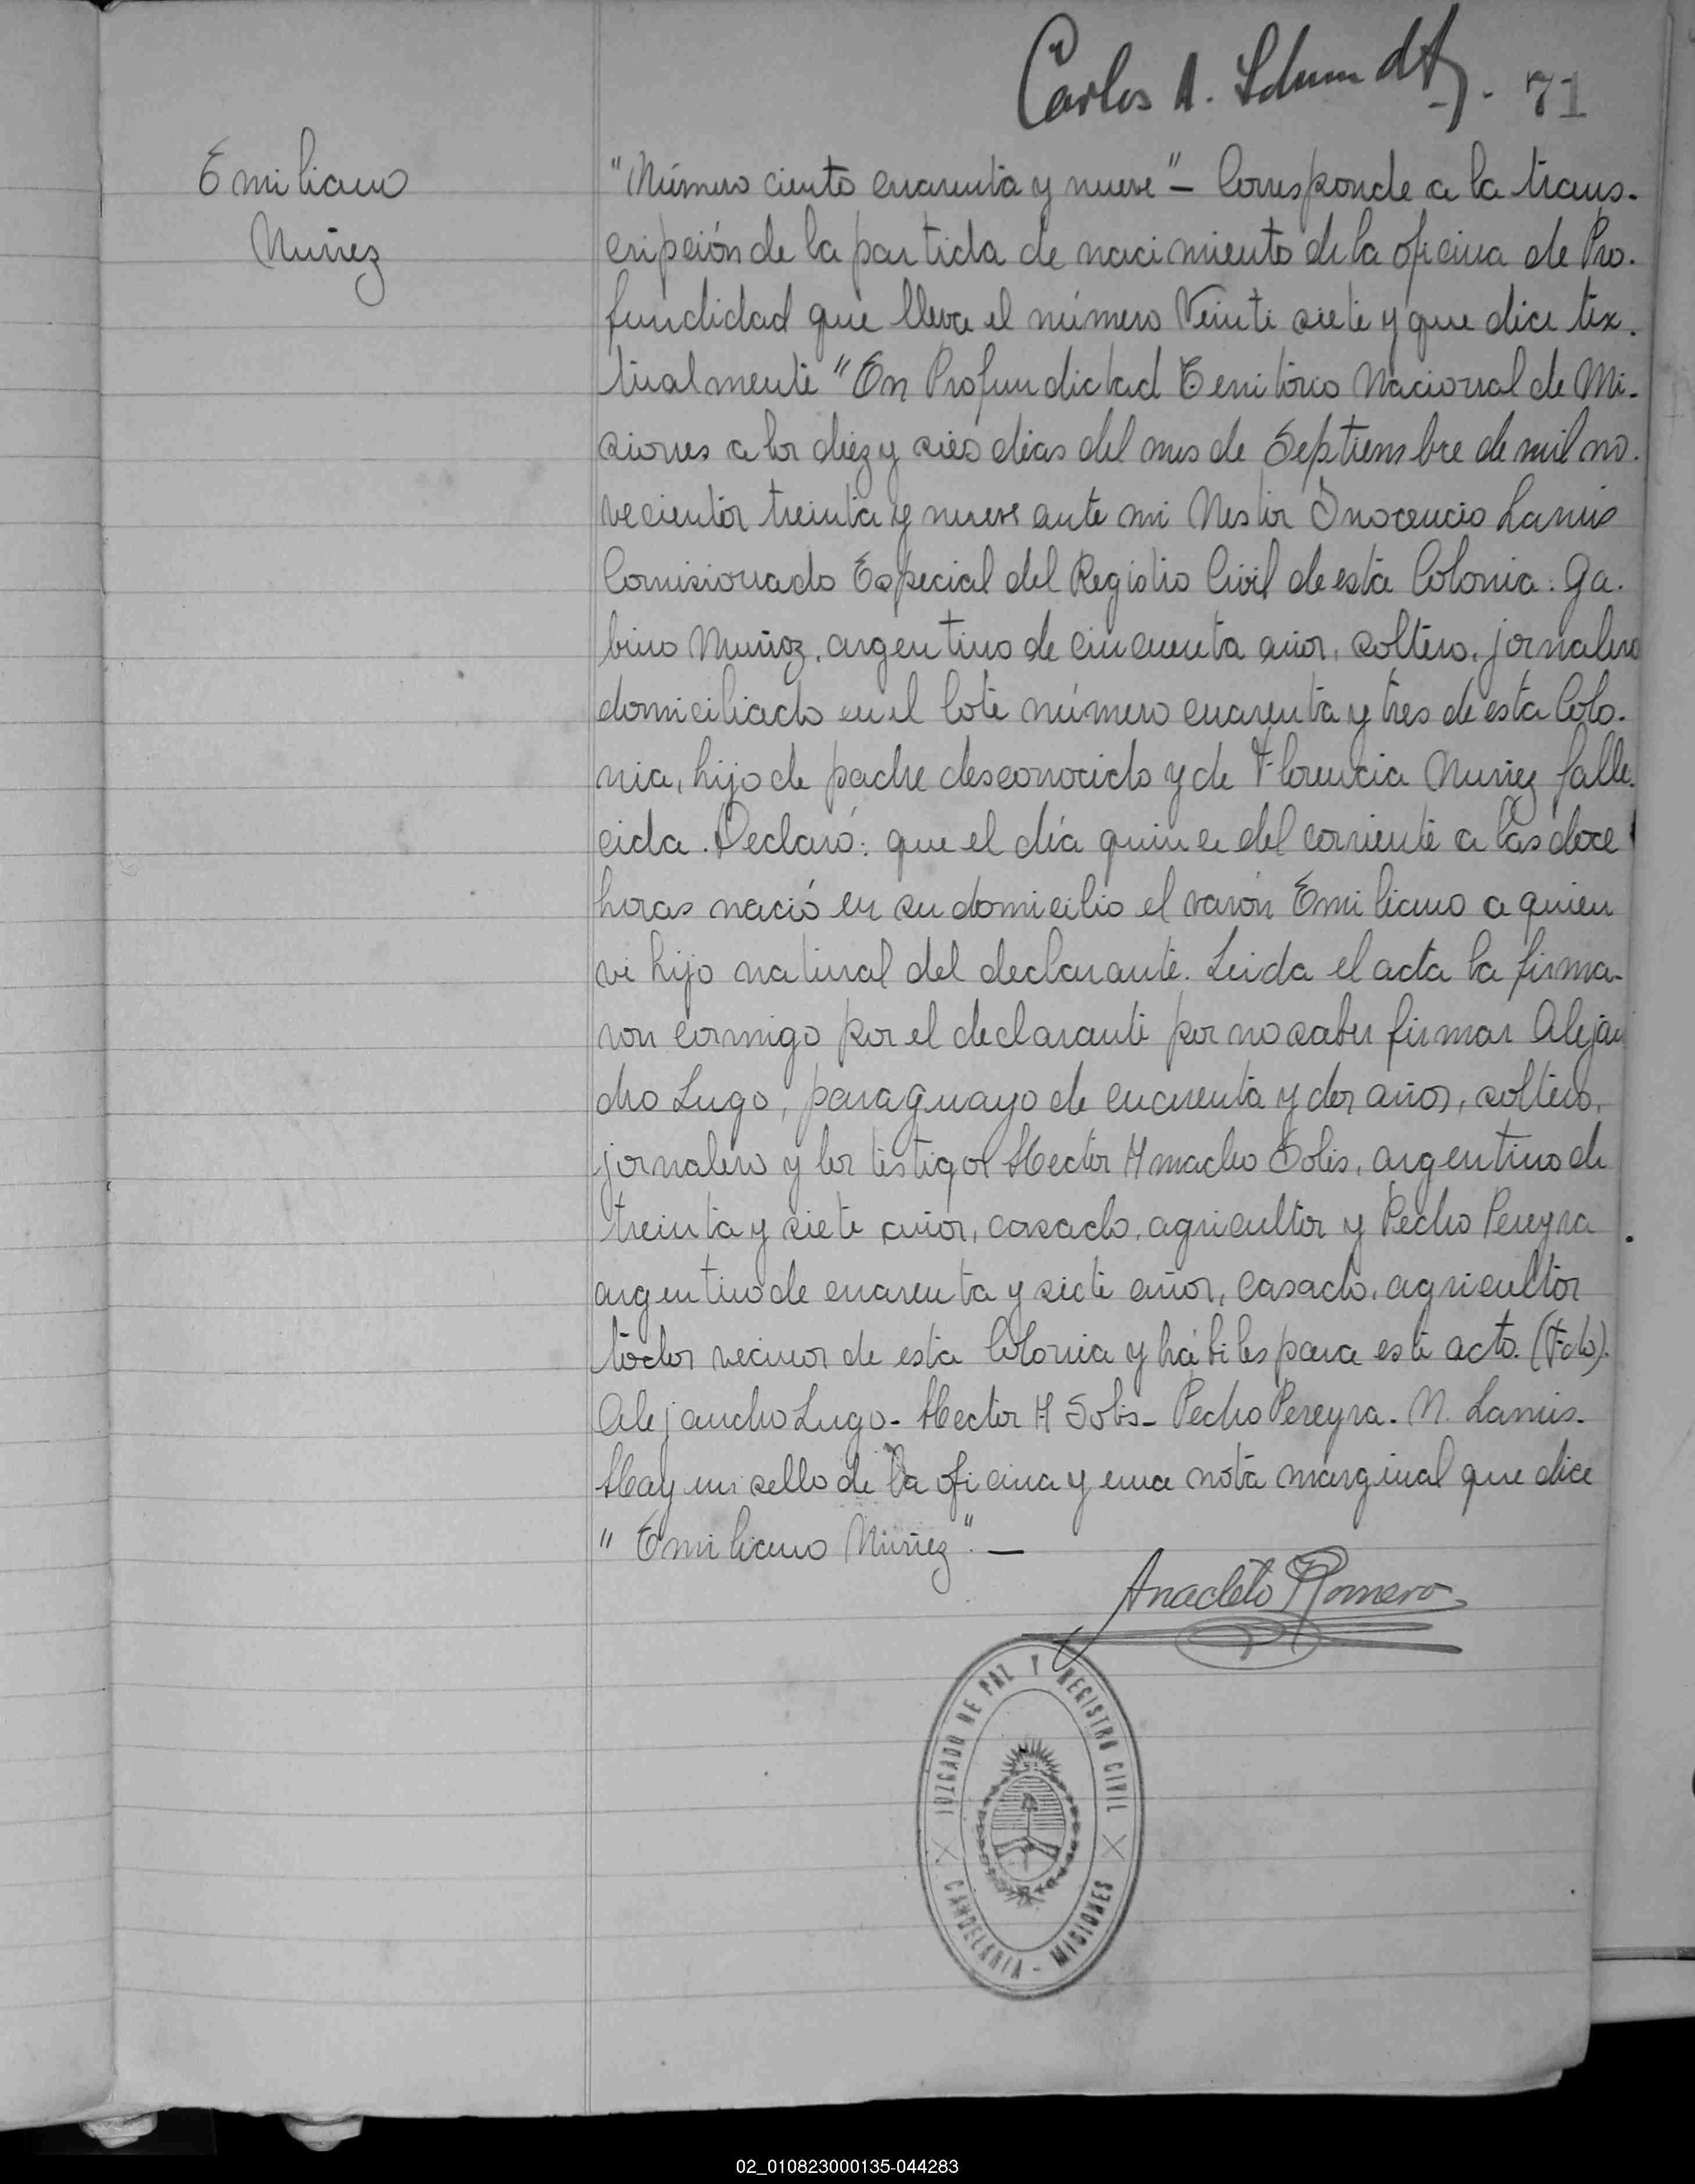 Carlos A. Schmidt 71
Emiliano
Nuñez
"Número ciento cuarenta y nueve" – Corresponde a la trans-
cripción de la partida de nacimiento de la oficina de Pro-
fundidad que lleva el número Veinte siete y que dice tex-
tualmente "En Profundidad Territorio Nacional de Mi-
siones a los diez y seis dias del mes de Septiembre de mil no-
vecientos treinta y nueve ante mi Nestor Inocencio Lanus
Comisionado Especial del Registro Civil de esta Colonia: Ga-
bino Nuñez, argentino de cincuenta años, soltero, jornalero
domiciliado en el lote número cuarenta y tres de esta Colo-
nia, hijo de padre desconocido y de Florencia Nuñez falle-
cida. Declaró: que el día quince del corriente a las doce
horas nació en su domicilio el varón Emiliano a quien
vi hijo natural del declarante. Leida el acta la firma-
ron conmigo por el declarante por no saber firmar Alejan
dro Lugo, paraguayo de cuarenta y dos años, soltero,
jornalero y los testigos Hector Solis, argentino de
treinta y siete años, casado, agricultor y Pedro Pereyra
argentino de cuarenta y siete años, casado, agricultor
todos vecinos de esta Colonia y hábiles para este acto. (Fdo).
Alejandro Lugo - Hector H Solis - Pedro Pereyra. N. Lanus.
Hay un sello de la oficina y una nota marginal que dice
"Emiliano Nuñez". –
Anacleto Romero
JUZGADO DE PAZ Y REGISTRO CIVIL
CANDELARIA - MISIONES
02_010823000135-044283